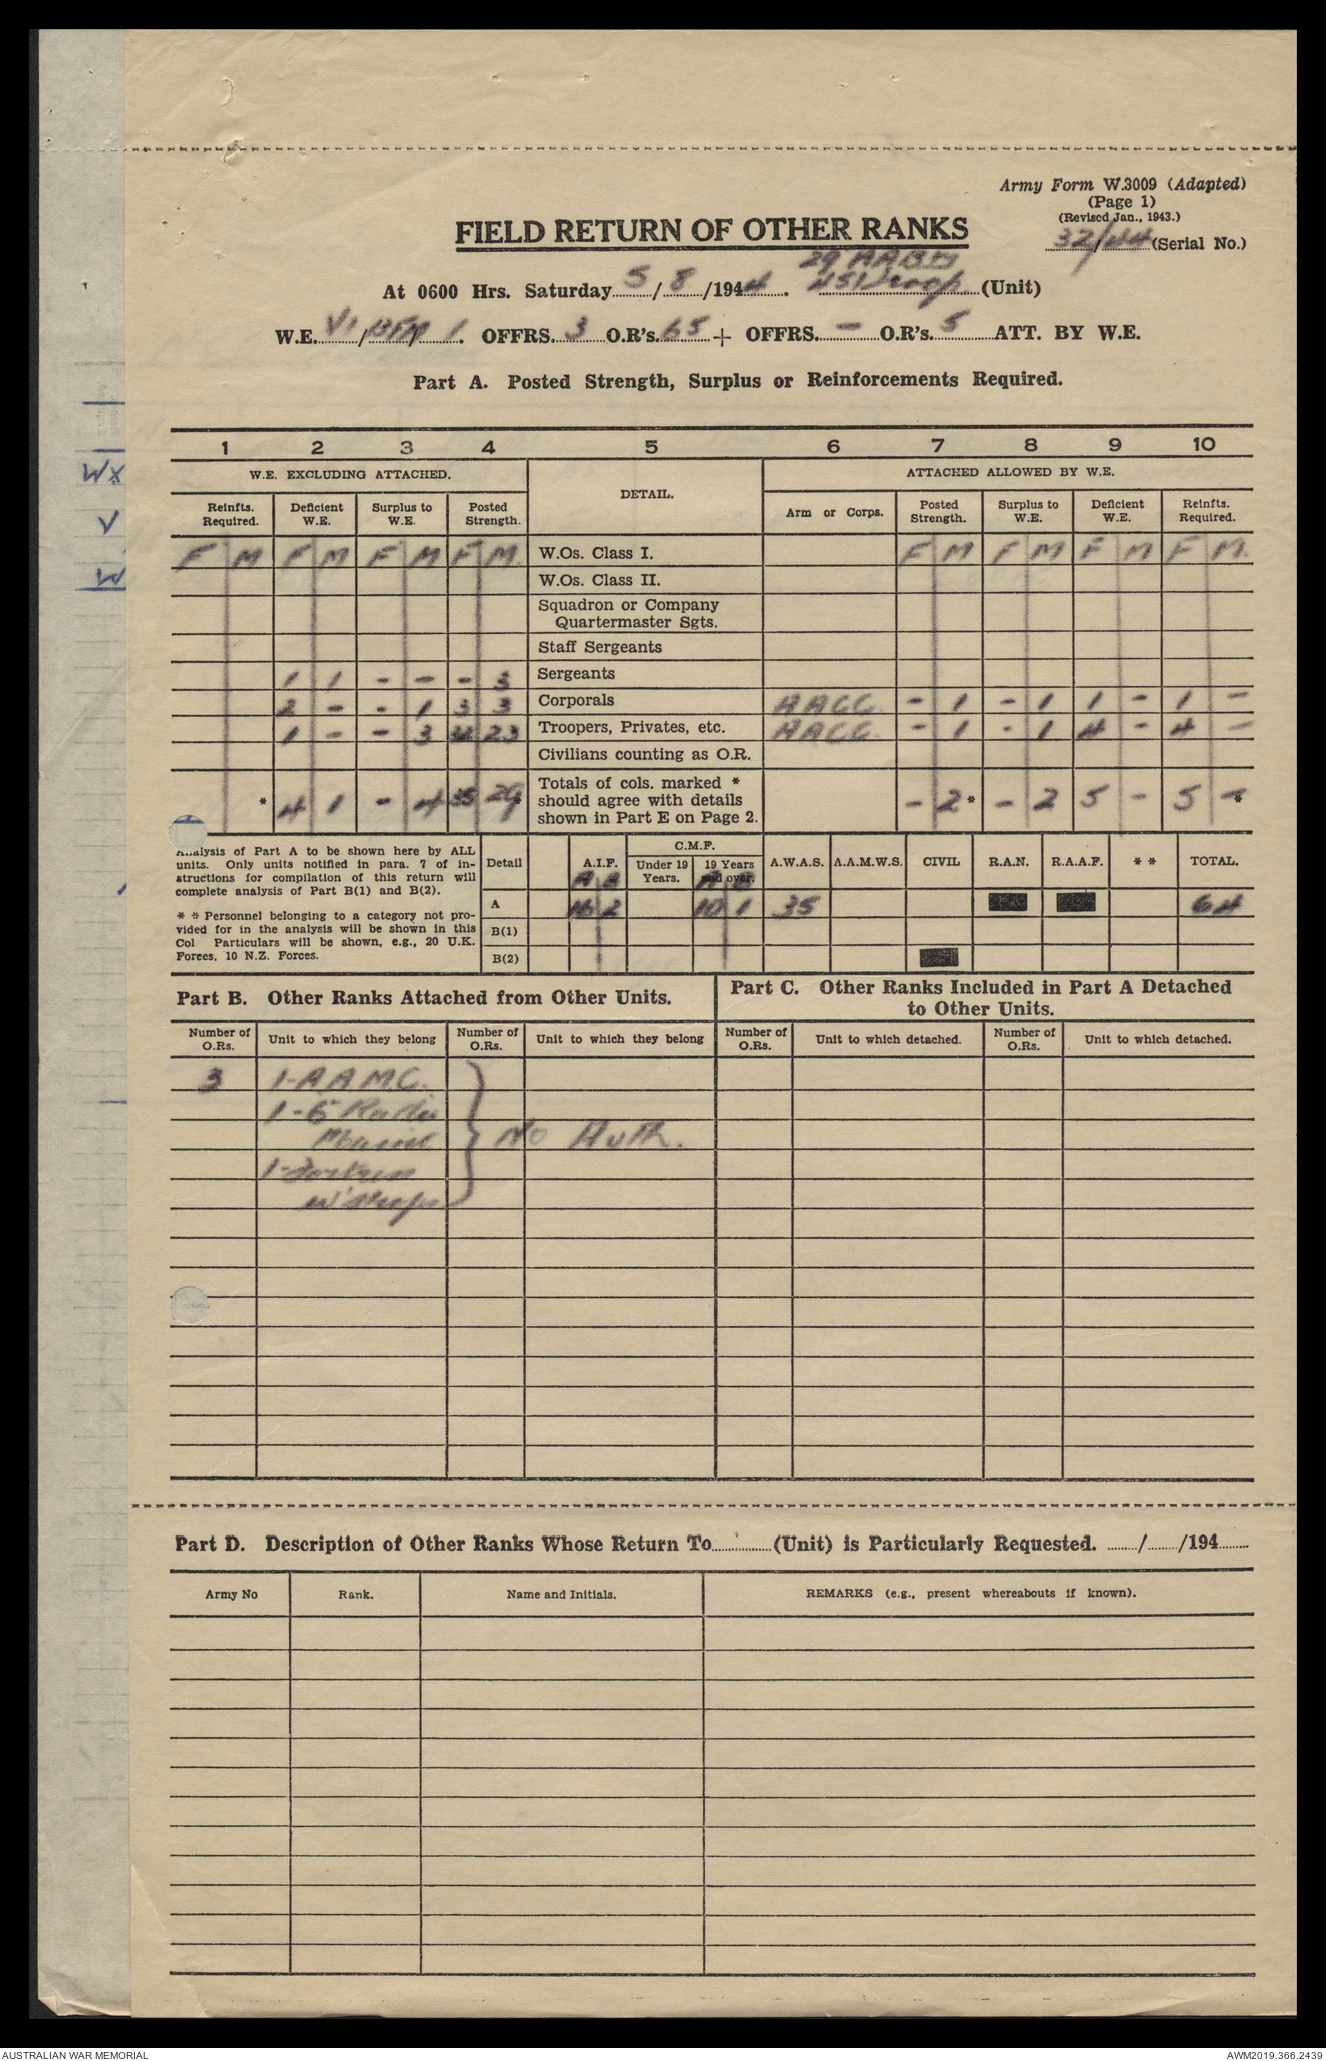 Army Form W.3009 (Adapted)
(Page 1)
(Revised Jan., 1943.)
32/44 (Serial No.)
FIELD RETURN OF OTHER RANKS
29 AABty
At 0600 Hrs. Saturday 5/8/1944. 451 Troop (Unit)
W.E. VI / / 1. OFFRS. 3 O.R's. 65 + OFFRS. – O.R's. 5 ATT. BY W.E.
Part A. Posted Strength, Surplus or Reinforcements Required.
1 2 3 4 5 6 7 8 9 10
W.E. EXCLUDING ATTACHED. DETAIL. ATTACHED ALLOWED BY W.E.
Reinfts. Required. Deficient W.E. Surplus to W.E. Posted Strength. Arm or Corps. Posted Strength. Surplus to W.E. Deficient W.E. Reinfts. Required.
F M F M F M F M. W.Os. Class I. F M F M F M F M.
W.Os. Class II.
Squadron or Company
Quartermaster Sgts.
Staff Sergeants
1 1 - - - 3 Sergeants
2 - - 1 3 3 Corporals AACC. - 1 - 1 1 - 1 -
1 - - 3 32 23 Troopers, Privates, etc. AACC. - 1 - 1 4 - 4 -
Civilians counting as O.R.
* 4 1 - 4 35 29 Totals of cols. marked * should agree with details shown in Part E on Page 2. - 2* - 2 5 - 5 -*
Analysis of Part A to be shown here by ALL
units. Only units notified in para. 7 of in-
structions for compilation of this return will
complete analysis of Part B(1) and B(2).
* * Personnel belonging to a category not pro-
vided for in the analysis will be shown in this
Col Particulars will be shown, e.g., 20 U.K.
Forces, 10 N.Z. Forces.
Detail A.I.F. C.M.F. Under 19 Years. 19 Years and over. A.W.A.S. A.A.M.W.S. CIVIL R.A.N. R.A.A.F. * * TOTAL.
A B A B
A 16 2 10 1 35 64
B(1)
B(2)
Part B. Other Ranks Attached from Other Units.
Part C. Other Ranks Included in Part A Detached
to Other Units.
Number of O.Rs. Unit to which they belong Number of O.Rs. Unit to which they belong Number of O.Rs. Unit to which detached. Number of O.Rs. Unit to which detached.
3 1-A.A.M.C.
1-6 Radio
No Auth.
1-Fortress
W'shops
Part D. Description of Other Ranks Whose Return To (Unit) is Particularly Requested. / /194
Army No Rank. Name and Initials. REMARKS (e.g., present whereabouts if known).
Wx
V
W
AUSTRALIAN WAR MEMORIAL AWM2019.366.2439